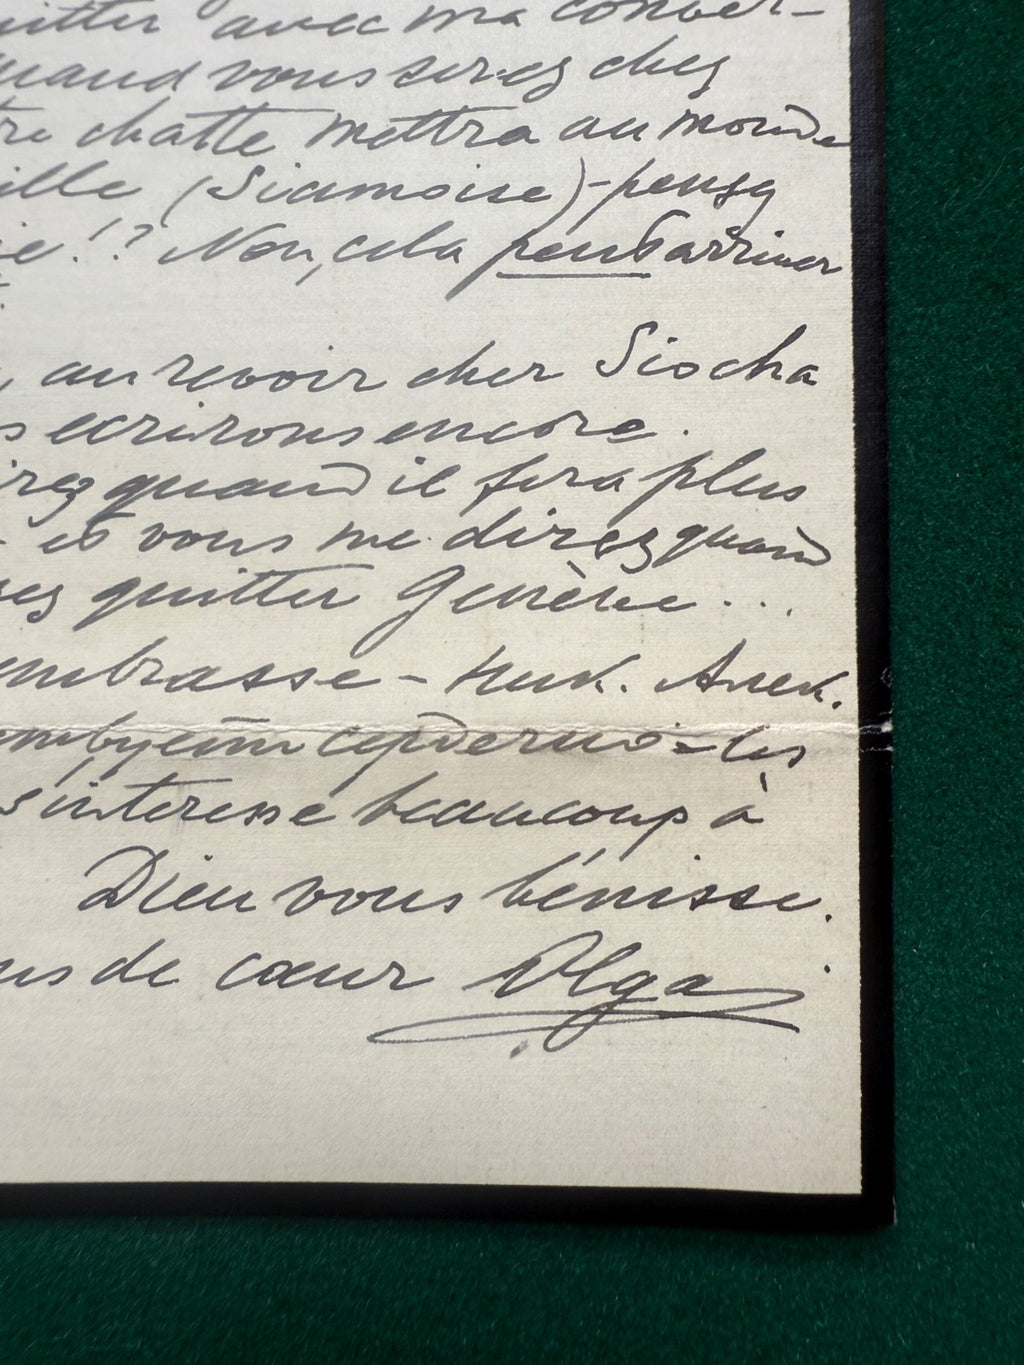 uitter avec ma conver-
quand vous serez chez
tre chatte mettra au monde
ille (Siamoise) - pensez
ie!? Non, cela peut arriver
, au revoir cher Siocha
s ecrirons encore.
irez quand il fera plus
- et vous me direz quand
sez quitter Genève...
embrasse -
les
s'interesse beaucoup à
Dieu vous bénisse.
us de cœur Olga